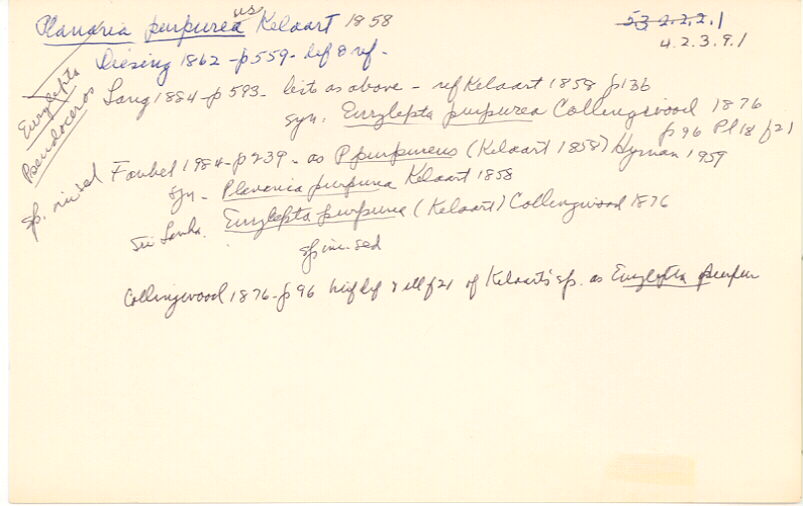 Planaria purpurea us Kelaart 1858
53 2.2.2.1
4.2.3.9.1
Diesing 1862 - p 559 - def & ref -
Eurylepta
Pseudoceros
Lang 1884 - p 593 - lists as above - ref Kelaart 1858 p 136
syn. Eurylepta purpurea Collingwood 1876
p 96 Pl 18 f 21
sp. in sed
Faubel 1984 - p 239 - as P purpureus (Kelaart 1858) Hyman 1959
syn - Planaria purpurea Kelaart 1858
Sri Lanka. Eurylepta purpurea (Kelaart) Collingwood 1876
sp inc. sed
Collingwood 1876 - p 96 def & ill f 21 of Kelaart's sp. as Eurylepta purpur